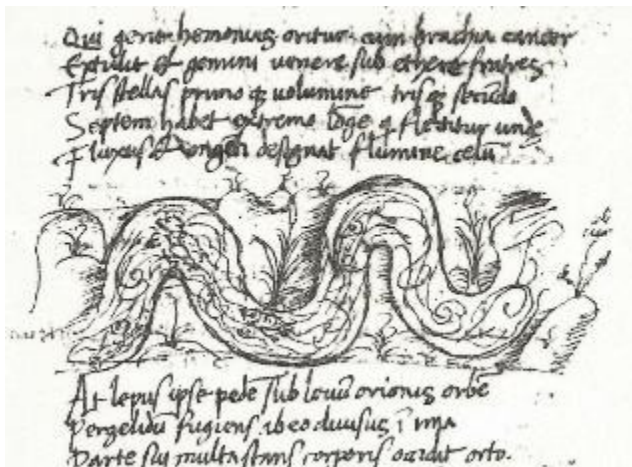 Qui genu hemonius oritur cum brachia cancer
Extulit et gemini venere sub ethere fratres
Tris stellas primo q; volumine tris q; secūdo
Septem habet extremo lōge q; flectitur unde
Fluxus designat flumine celū
At lepus ipse pede sub leuū orionis orbē
Pergelidū fugiens ab eo divisus ī ima
Parte sui multa stans corporis occidit orto.